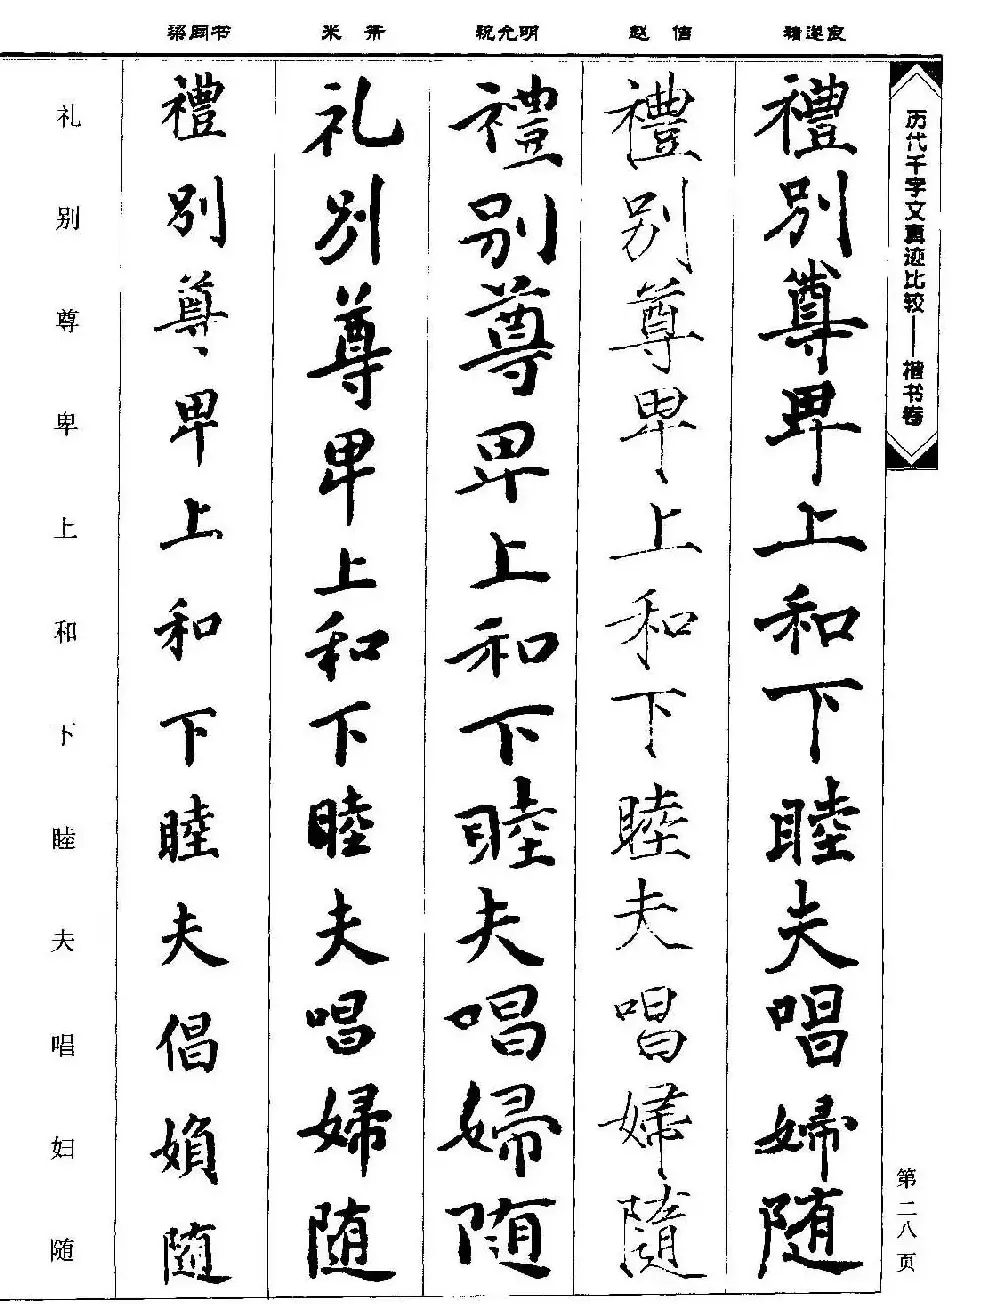 历代千字文真迹比较——楷书卷
第二八页
褚遂良
禮别尊卑上和下睦夫唱婦随
赵佶
禮别尊卑上和下睦夫唱婦隨
祝允明
禮别尊卑上和下睦夫唱婦随
米芾
礼别尊卑上和下睦夫唱婦随
梁同书
禮别尊卑上和下睦夫倡媍随
礼别尊卑上和下睦夫唱妇随